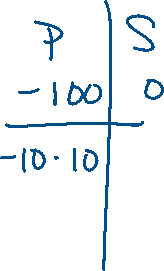 P S
-100 0
-10·10